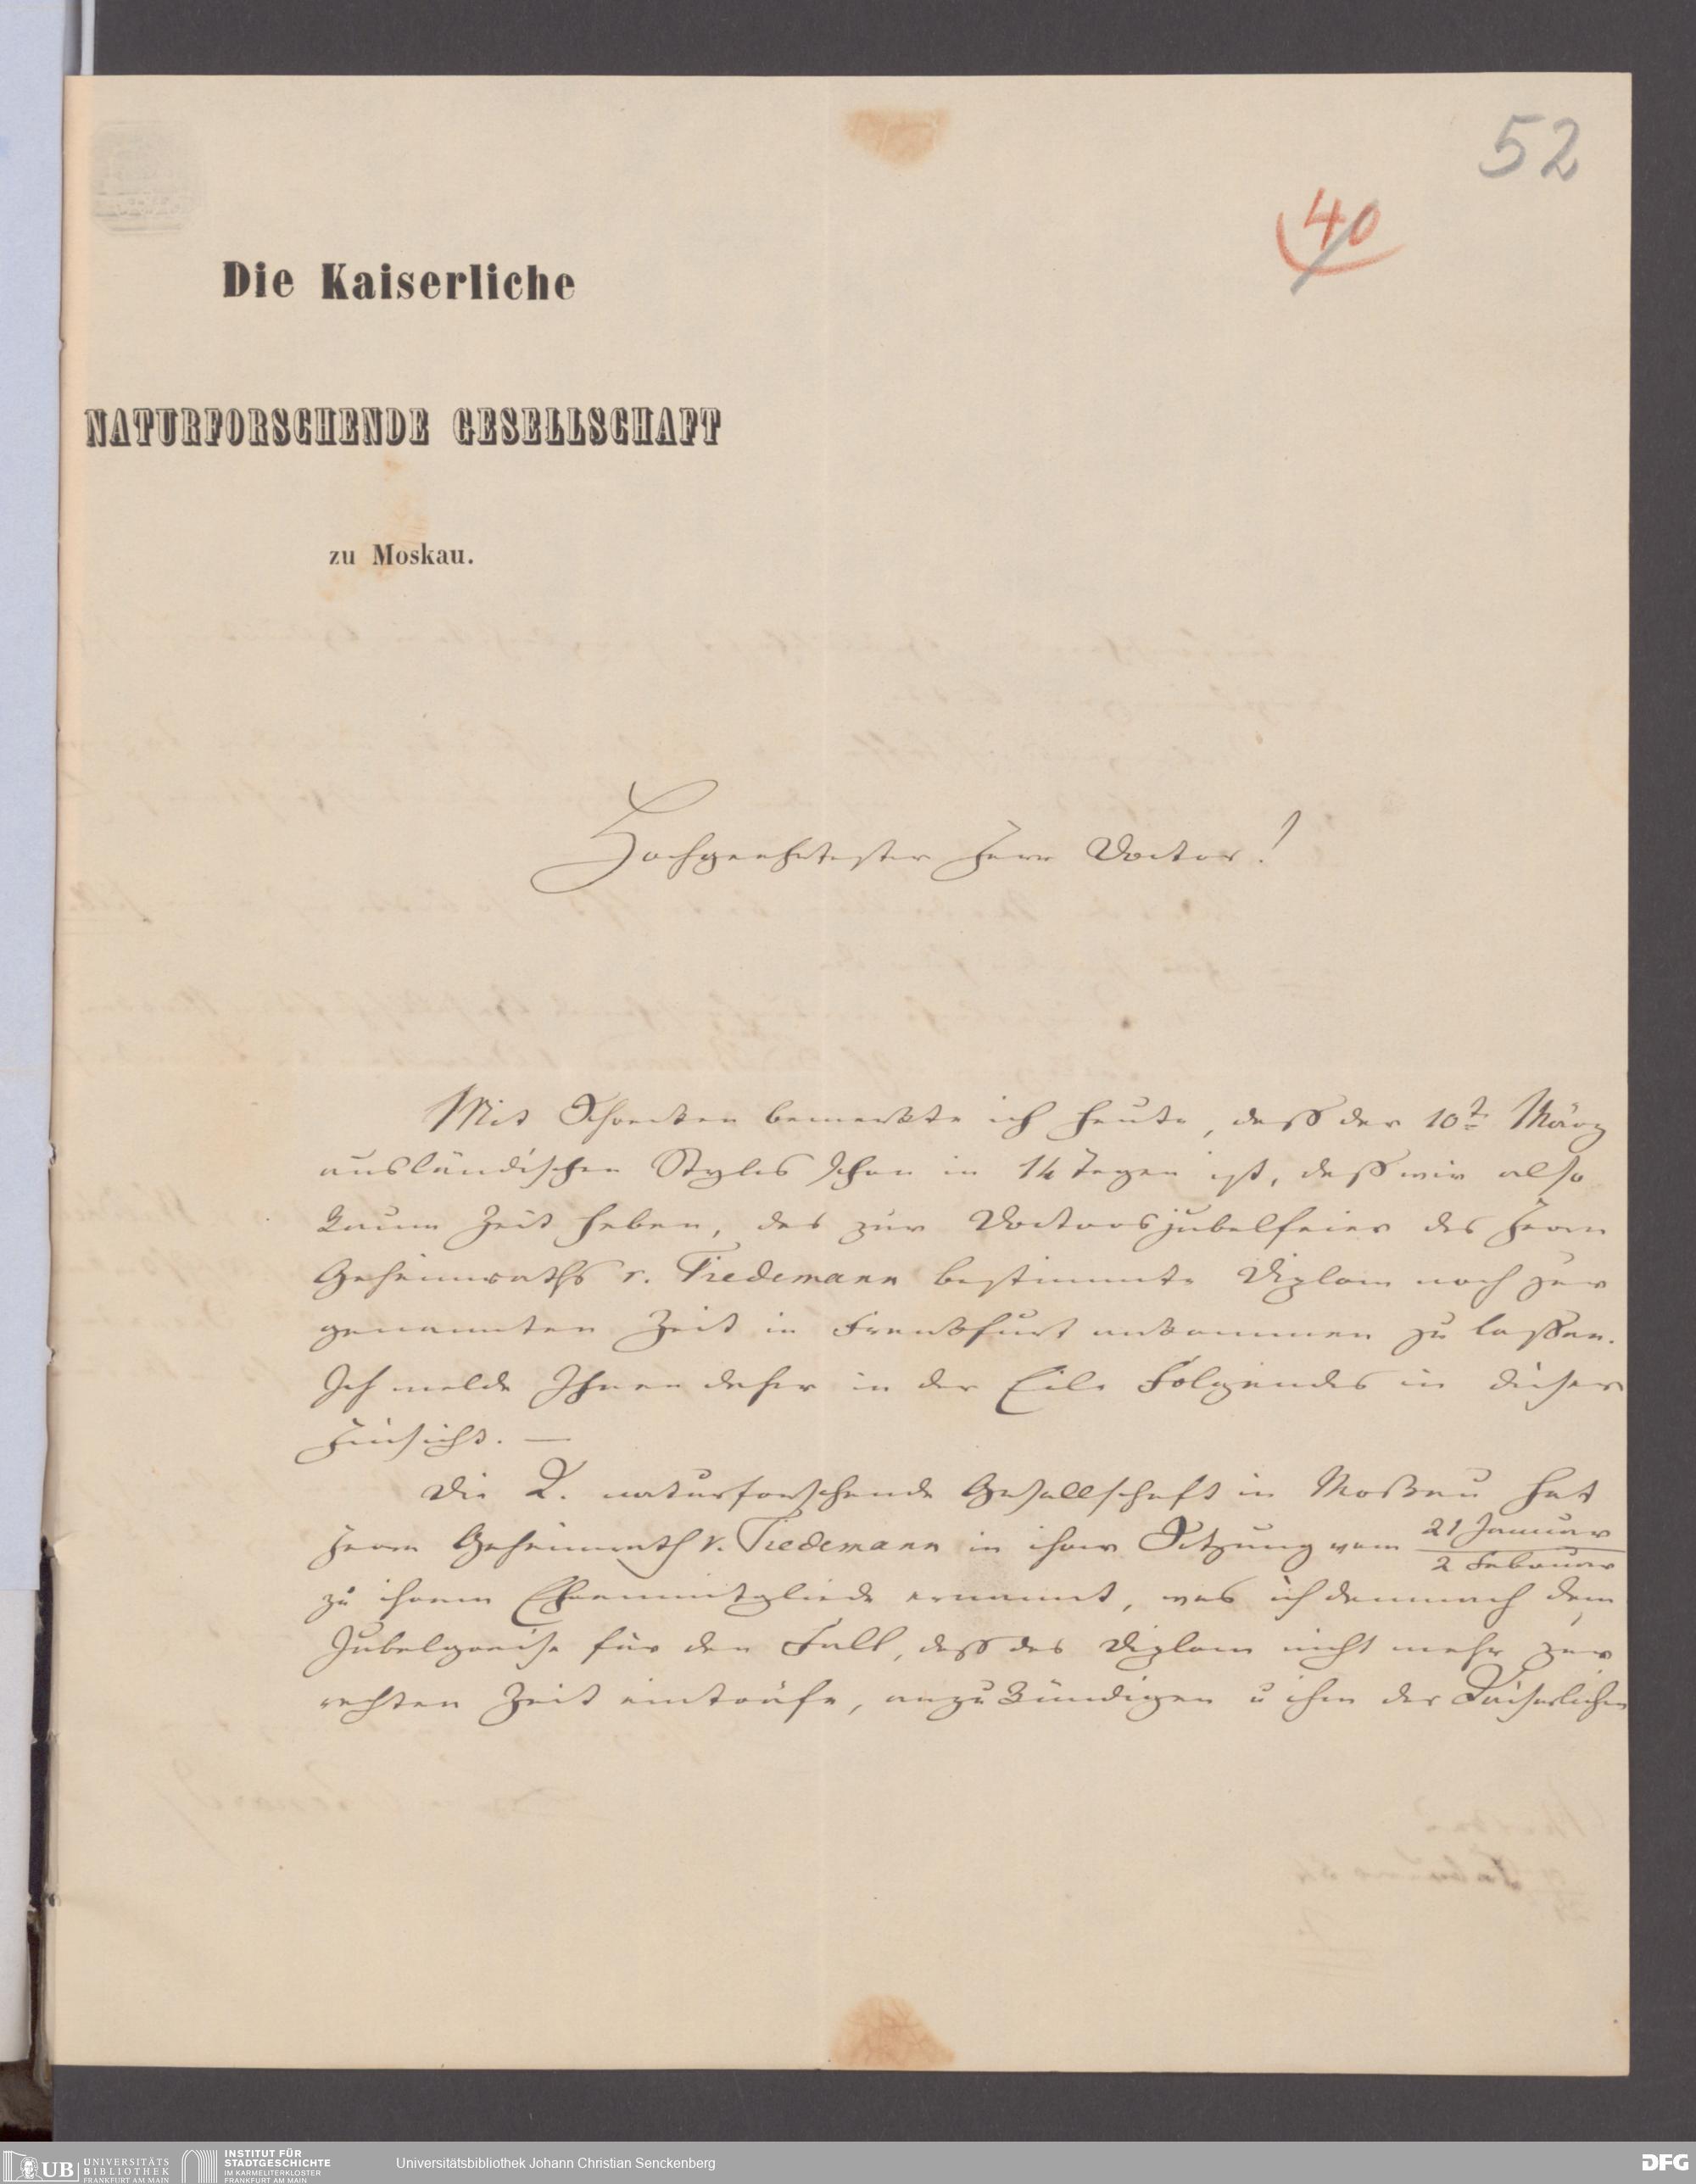 52
40
Die Kaiserliche
NATURFORSCHENDE GESELLSCHAFT
zu Moskau.
Hochgeehrtester Herr Doctor!
Mit Schrecken bemerkte ich heute, daß der 10te März
ausländischen Styles schon in 14 Tagen ist, daß wir also
kaum Zeit haben, das zur Doctorsjubelfeier des Herrn
Geheimraths v. Tiedemann bestimmte Diplom noch zur
genannten Zeit in Frankfurt ankommen zu lassen.
Ich melde Ihnen daher in der Eile Folgendes in dieser
Hinsicht. —
Die K. naturforschende Gesellschaft in Moskau hat
Herrn Geheimrath v. Tiedemann in ihrer Sitzung vom 21 Januar / 2 Februar
zu ihrem Ehrenmitgliede ernannt, was ich demnach dem
Jubelgreise für den Fall, daß das Diplom nicht mehr zur
rechten Zeit einträfe, anzukündigen u ihm der Kaiserlichen
UB UNIVERSITÄTS
BIBLIOTHEK
FRANKFURT AM MAIN
INSTITUT FÜR
STADTGESCHICHTE
IM KARMELITERKLOSTER
FRANKFURT AM MAIN
Universitätsbibliothek Johann Christian Senckenberg
DFG